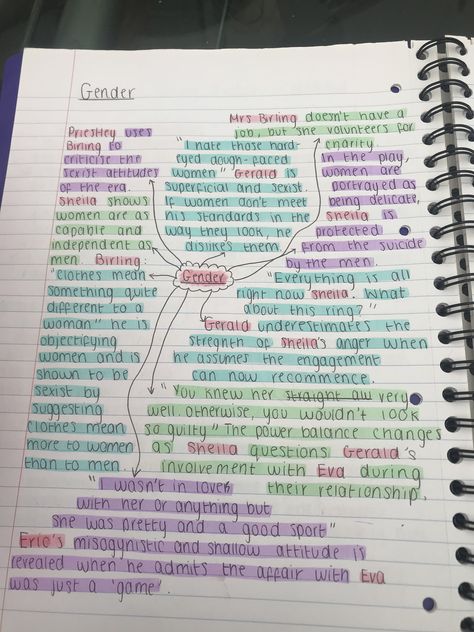 Gender
Priestley uses
Birling to
criticise the
sexist attitudes
of the era.
Sheila shows
women are as
capable and
independent as
men. Birling:
"clothes mean
something quite
different to a
woman" he is
objectifying
women and is
shown to be
sexist by
suggesting
clothes mean
more to women
than to men.
"I hate those hard-
eyed dough-faced
women" Gerald is
superficial and sexist.
If women don't meet
his standards in the
way they look, he
dislikes them.
Mrs Birling doesn't have a
job, but she volunteers for
charity.
In the play,
women are
portrayed as
being delicate,
Sheila is
protected
from the suicide
by the men.
Gender
"Everything is all
right now Sheila. What
about this ring?"
Gerald underestimates the
stregnth of Sheila's anger when
he assumes the engagement
can now recommence.
"You knew her straight all very
well. otherwise, you wouldn't look
so guilty" The power balance changes
as Sheila questions Gerald's
involvement with Eva during
their relationship.
"I wasn't in love
with her or anything but
she was pretty and a good sport"
Eric's misogynistic and shallow attitude is
revealed when he admits the affair with Eva
was just a 'game'.